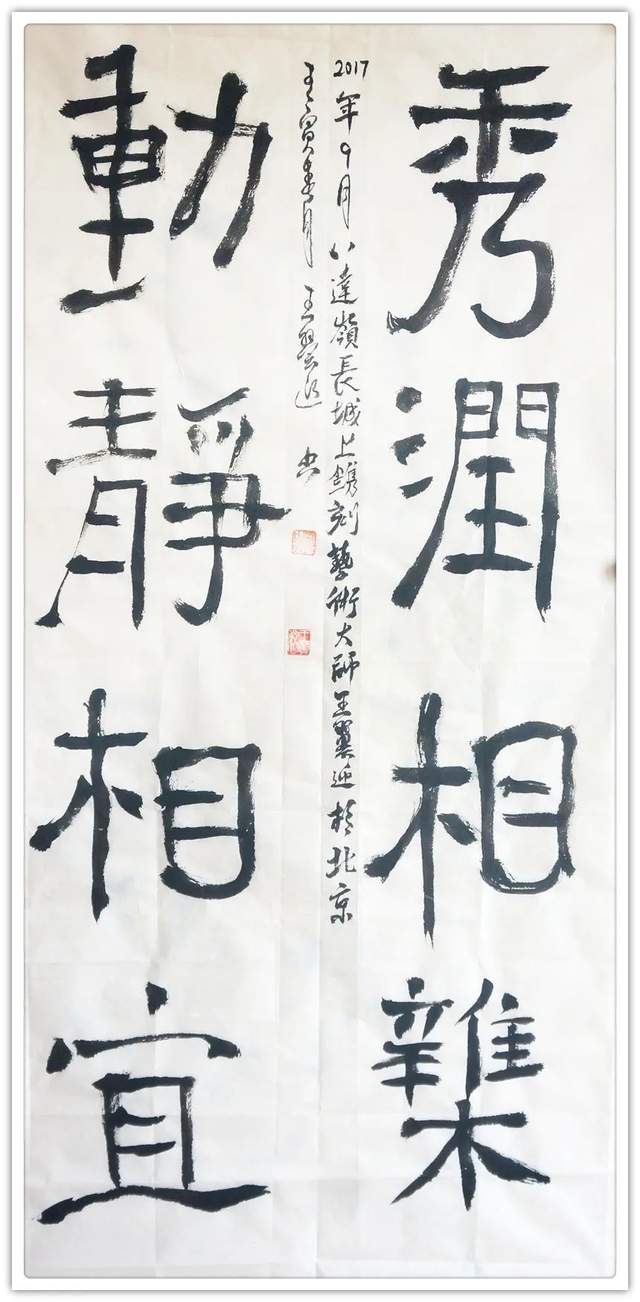 秀潤相雜
2017年9月八達嶺長城上鐫刻藝術大師王翼於北京
壬寅春月 王翼 書
動靜相宜